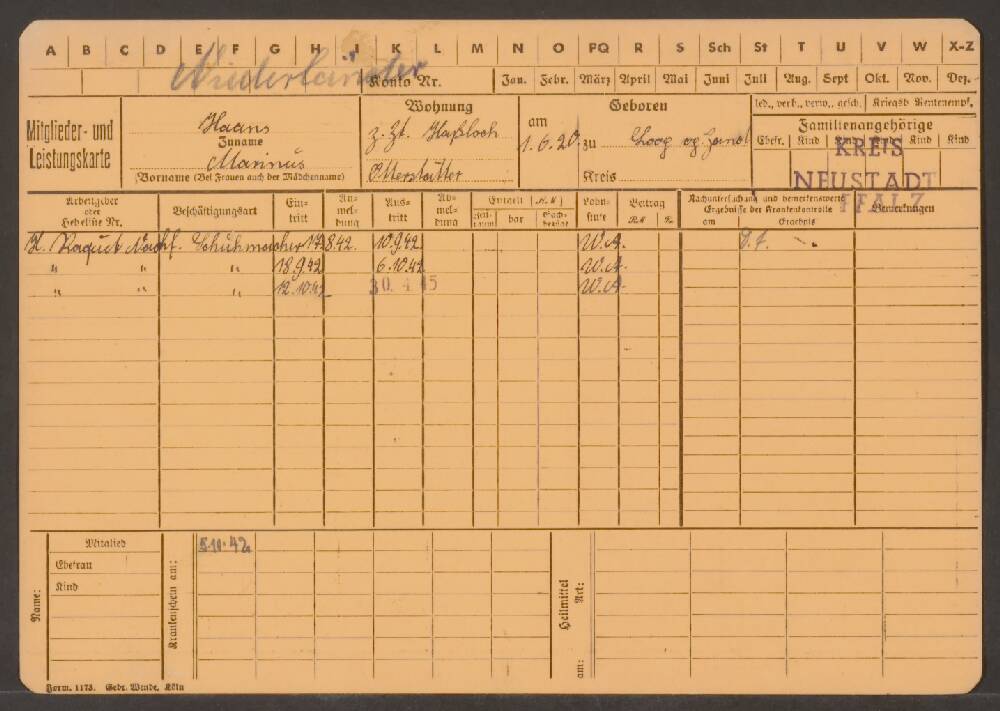 A B C D E F G H I K L M N O PQ R S Sch St T U V W X-Z
Niederländer
Konto Nr. Jan. Febr. März April Mai Juni Juli Aug. Sept Okt. Nov. Dez.
Mitglieder- und
Leistungskarte
Haans
Zuname
Marinus
Vorname (Bei Frauen auch der Mädchenname)
Wohnung
z. Zt. Haßloch
Geboren
am
1.6.20. zu Loog og
Kreis
led., verh., verw., gesch. Kriegsb. Rentenempf.
Familienangehörige
Ehefr. Kind Kind Kind Kind Kind
KREIS
NEUSTADT
PFALZ
Arbeitgeber
oder
Hebeliste Nr.
Beschäftigungsart
Ein-
tritt
An-
mel-
dung
Aus-
tritt
Ab-
mel-
dung
Entgelt (RM)
bar
Sach-
bezüge
Lohn-
stufe
Beitrag
RM
Nachuntersuchung und bemerkenswerte
Ergebnisse der Krankenkontrolle
am Ergebnis
Bemerkungen
H. Haquet Nachf. Schuhmacher 17.8.42. 10.9.42 W.A.
" " " 18.9.42 6.10.42 W.A.
" " " 12.10.42 30.4.45 W.A.
Name:
Mitglied
Ehefrau
Kind
Krankenschein am:
5.10.42
Heilmittel
Art:
am:
Form. 1173. Gebr. Wende, Köln